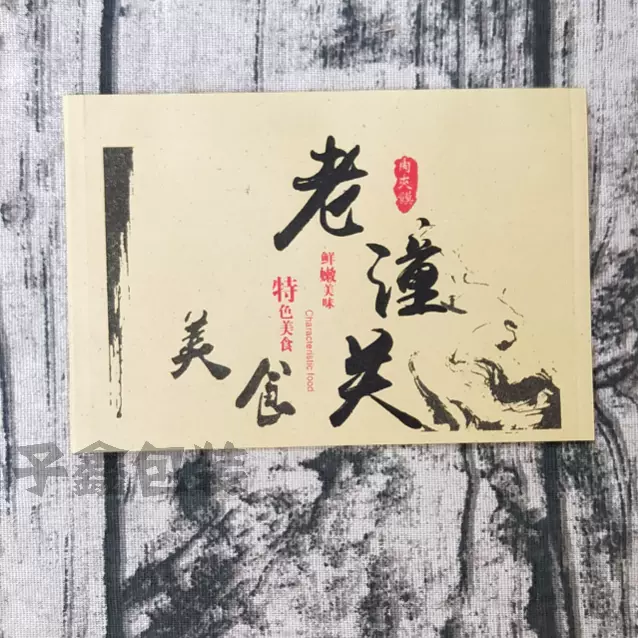 老潼关
肉夹馍
鲜嫩美味
特色美食
Characteristic food
美食
子鑫包装